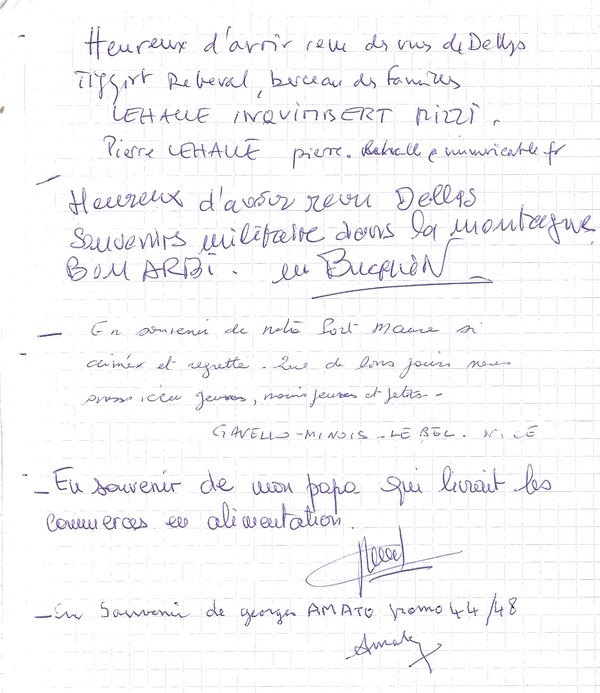 Heureux d'avoir revu des vues de Dellys
Tigzirt Rebeval, berceau des familles
LEHALLE INQUIMBERT RIZZI.
Pierre LEHALLE pierre.
Heureux d'avoir revu Dellys
Souvenirs militaire dans la montagne
BOU ARBI. en
En souvenir de notre Port Maure si
aimée et regretté. Que de bons jours nous
jeunes, moins jeunes et petits.
GAVELLO-MINOIS-LEBEL. NICE
En souvenir de mon papa qui livrait les
commerces en alimentation.
En Souvenir de georges AMATO promo 44/48
Amato